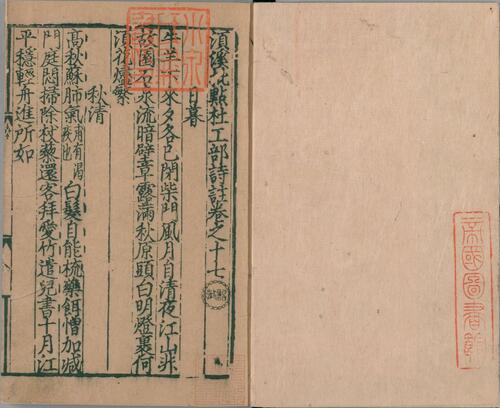 須溪批點杜工部詩註卷之十七
日暮
牛羊下來夕各已閉柴門風月自清夜江山非
故園石泉流暗壁草露滿秋原頭白明燈裏何
須花燼繁
秋清
高秋蘇肺氣甫有渴疾也白髮自能梳藥餌憎加減
門庭悶掃除杖藜還客拜愛竹遣兒書十月江
平穩輕舟進所如
帝國圖書館